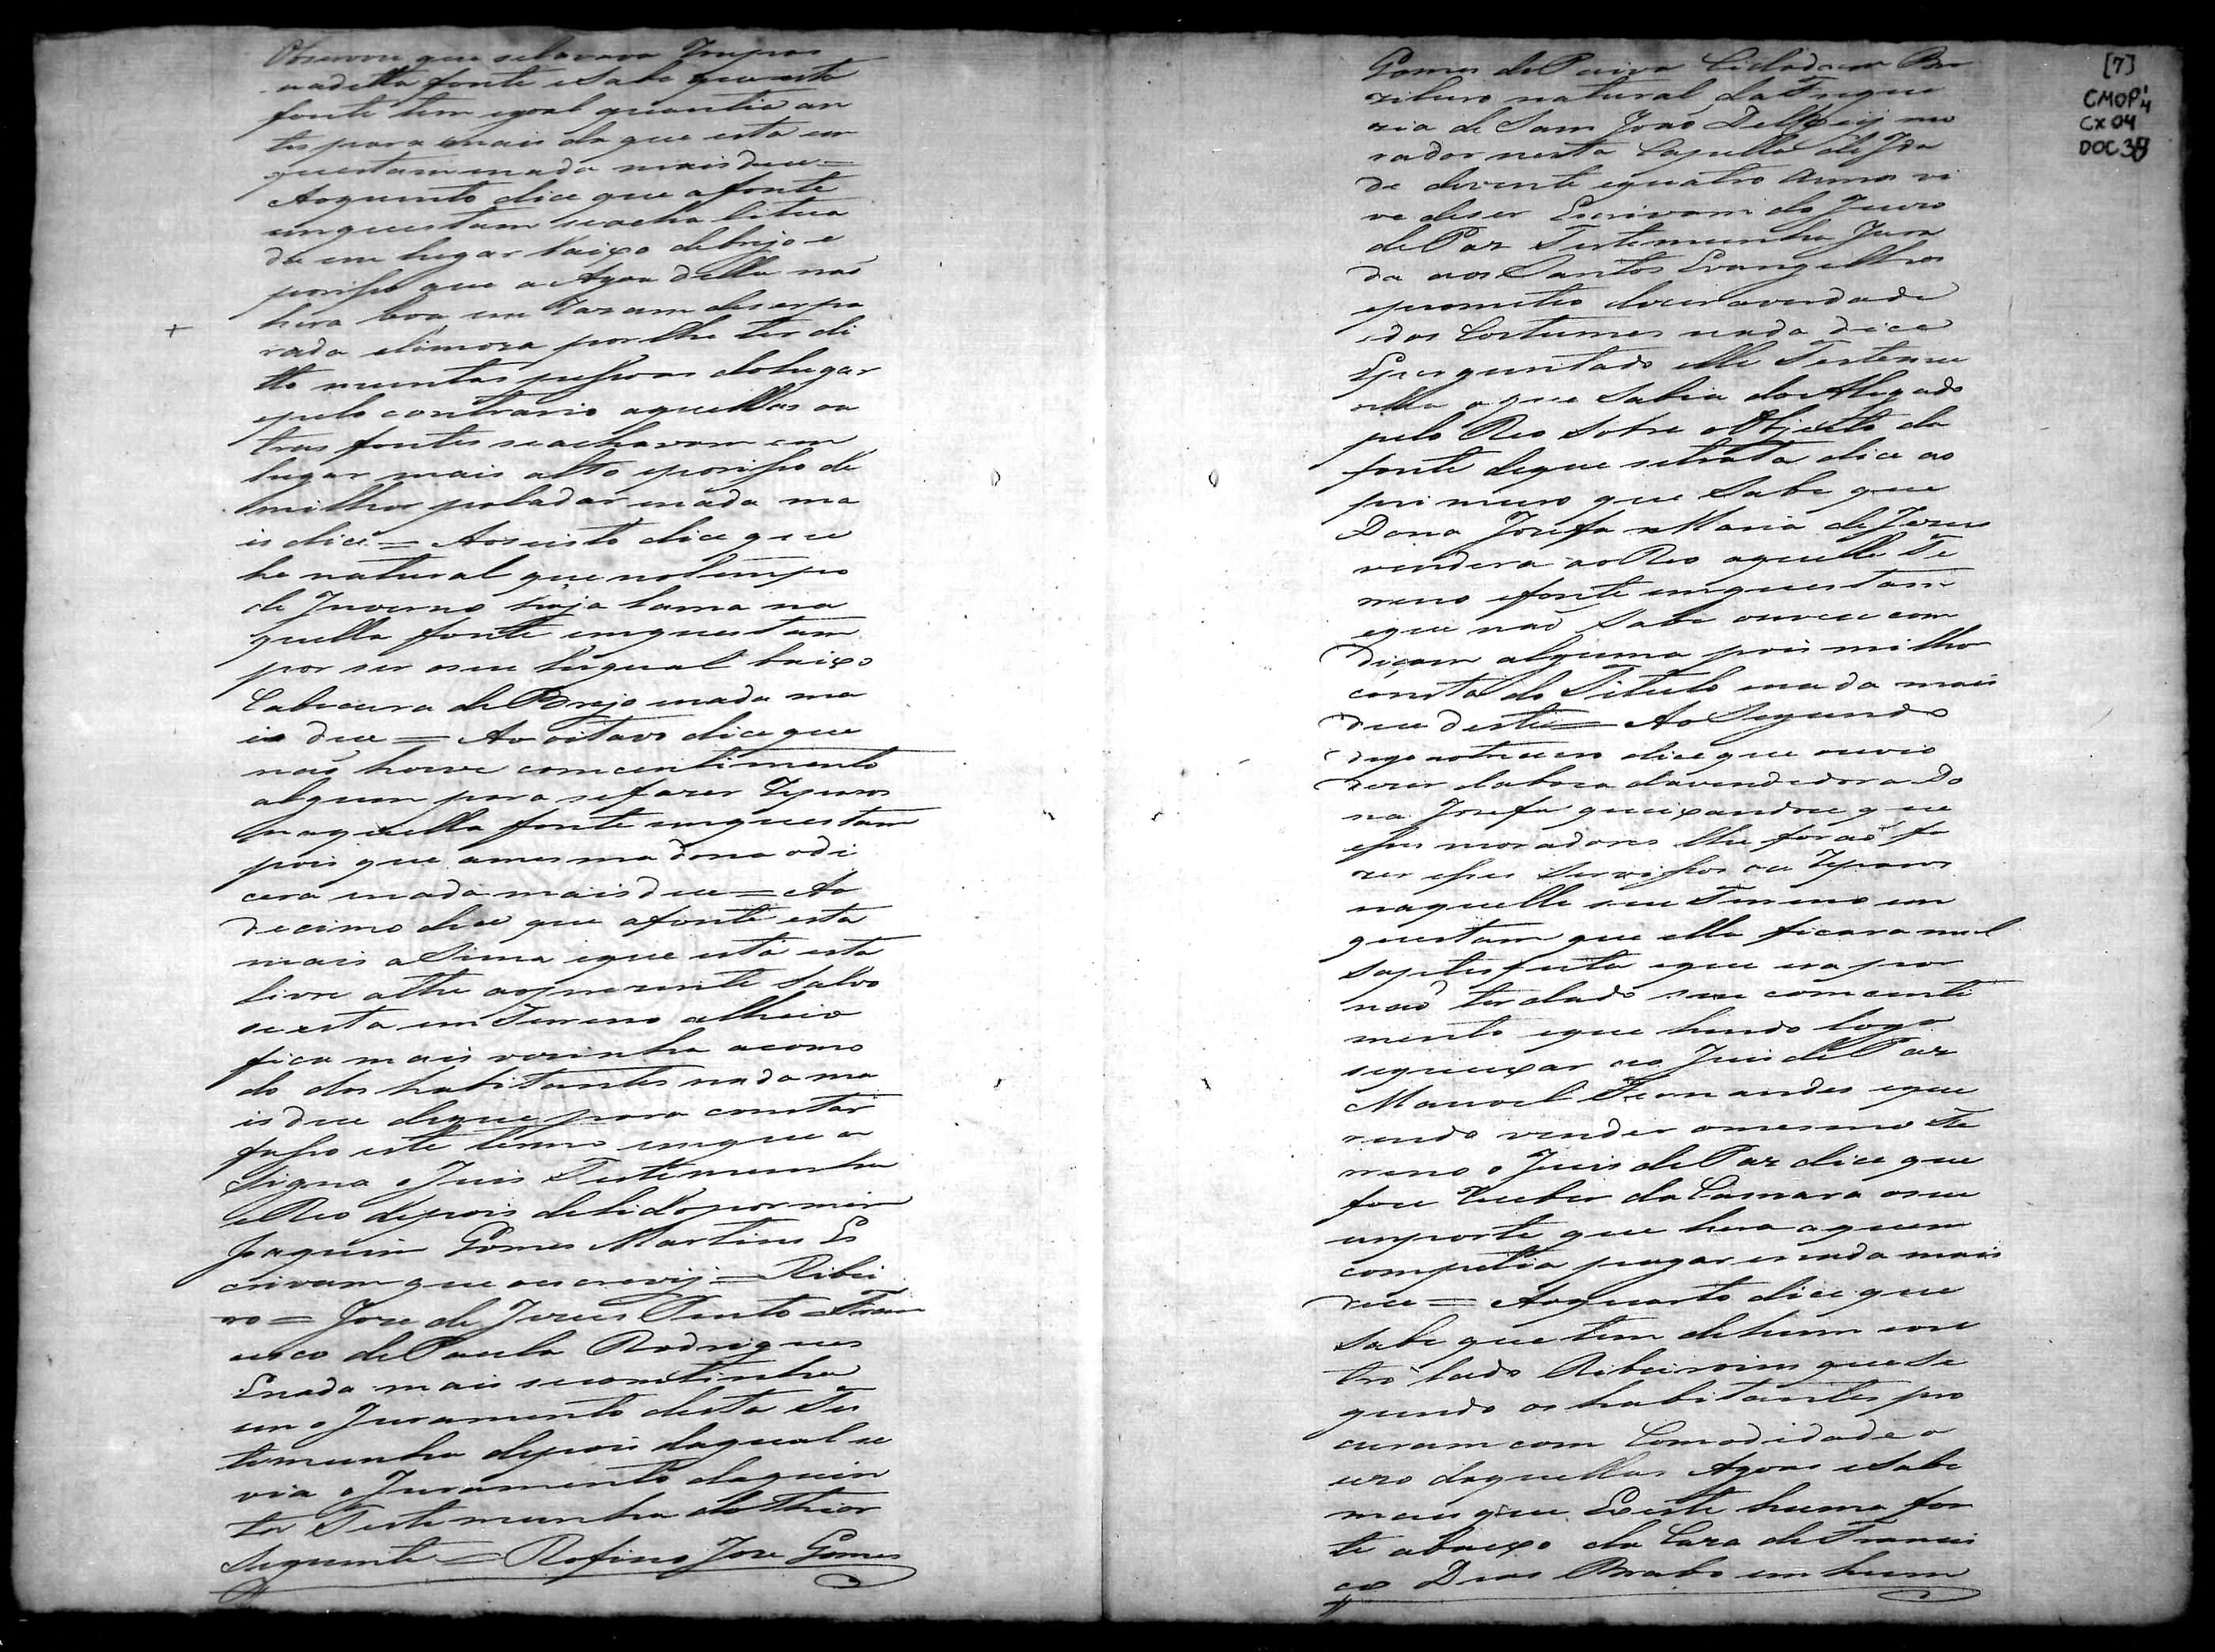 Observou que selavava Roupas
nadella fonte esabe que esta
fonte tem egoal quantia an
tes para mais da que esta em
questam enada mais dice =
Aoquinto dice que a fonte
emquestam seacha situa
da em lugar baixo debrejo e
porisso que a Agoa della não
hera boa em Razam deser pa
rada elimoza por lhe ter di
tto muntas pessoas dolugar
epelo contrario aquellas ou
tras fontes seachavam em
lugar mais alto eporisso de
milhor paladar enada ma
is dice = Aoseisto dice que
he natural que notempo
de Inverno haja lama na
quella fonte emquestam
por ser oseu lugual baixo
Cabiceira de Brejo enada ma
is dice = Ao oitavo dice que
não houve comcentimento
algum para sefazer Reparos
naquella fonte emquestam
pois que amesma dona odi
cera enada mais dice = Ao
decimo dice que afonte esta
mais aSima eque está esta
livre athe aoprezente salvo
se esta em Terreno alheio
fica mais vezinha acomo
do dos habitantes nada ma
is dice deque para constar
fasso este termo emque a
Signa o Juis Testemunha
e Reo depois delido por mim
Joaquim Gomes Martins Es
crivam que oescrevij = Ribei
ro = Joze de Jezus Pinto = Fran
cisco de Paula Rodrigues
Enada mais secomtinha
em o Juramento desta Tes
temunha depois daqual se
via o Juramento daquin
ta Testemunha do Thior
seguinte = Rofino Joze Gomes
Gomes de Paiva Cidadam Bra
zileiro natural da Fregue
zia de Sam João Del Rey mo
rador nesta Capella de Ida
de devinte equatro annos vi
ve deser Escrivam do Juizo
de Paz Testemunha Jura
da aos Santos Evangelhos
eprometeo dizer averdade
edos Costumes nada dice
Eperguntado elle Testemu
nha oque Sabia do Alegado
pelo Reo Sobre oObjecto da
fonte deque setrata dice ao
primeiro que Sabe que
Dona Jozefa Maria de Jezus
vendera ao Reo aquelle Te
rreno efonte emquestam
eque não Sabe ouvece com
diçam alguma pois milhor
consta do Titulo enada mais
dice deste = Ao Segundo
digo ao dice que ouvio
dizer daboca davendedora Do
na Jozefa queixandoce que
esses moradores lhe forão fa
zer esses Servissos ou Reparos
naquelle seu Terreno em
questam que ella ficara mal
saptesfeita eque era por
não ter dado seu comcenti
mento eque hindo logo
sequeixar ao Juis de Paz
Manoel Fernandes eque
rendo vender omesmo Te
rreno o Juis de Paz dice que
foce Receber da Camara oseu
importe que hera aquem
competia pagar enada mais
dice = Aoquarto dice que
Sabe que tem dehum eou
tro lado Ribeiroins que Se
gundo os habitantes pro
curam com Comodidade o
uzo daquellas Agoas esabe
mais que Existe huma fon
te abaixo da Caza de Francis
co Dias Brabo em hum
[7]
CMOP
CX 04